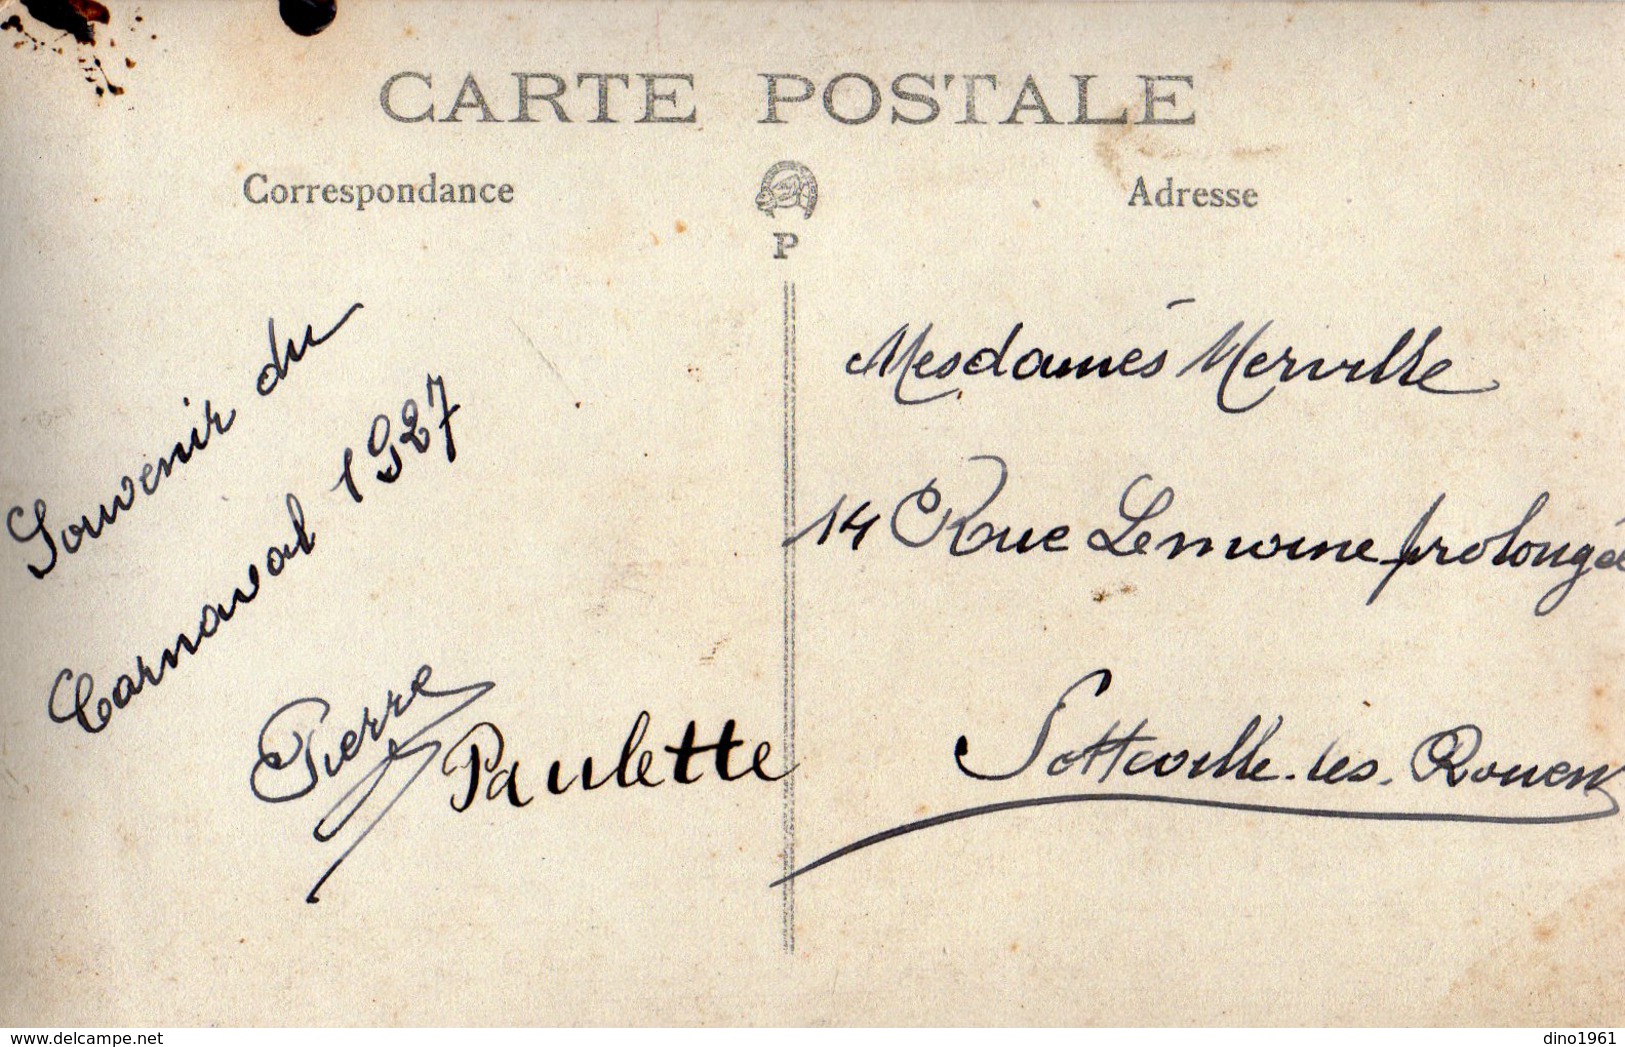 CARTE POSTALE
Correspondance
Adresse
P
Souvenir du
Carnaval 1927
Pierre
Paulette
Mesdames Merville
14 Rue Lemoine prolongée
Sotteville-les-Rouen
www.delcampe.net
dino1961